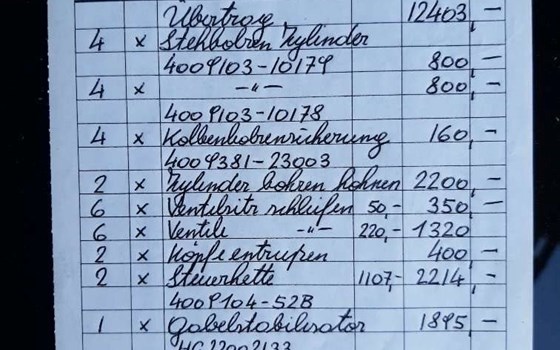 Übertrag 12403,-
4 x Stehbolzen Zylinder
4009103-10179 800,-
4 x -"- 800,-
4009103-10178
4 x Kolbenbolzensicherung 160,-
4009381-23003
2 x Zylinder bohren hohnen 2200,-
6 x Ventilsitz schleifen 50,- 350,-
6 x Ventile -"- 220,- 1320
2 x Köpfe entrußen 400,-
2 x Steuerkette 1107,- 2214,-
4009104-52B
1 x Gabelstabilisator 1895,-
HG22002133